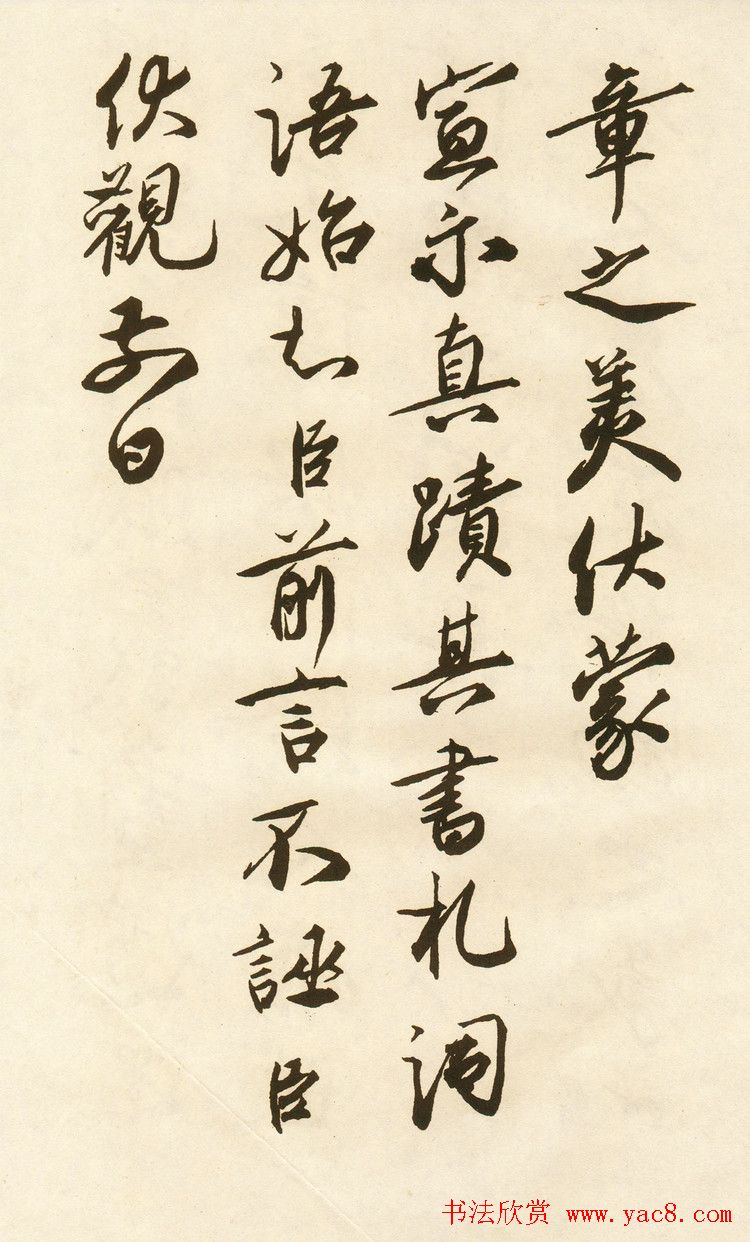 章之美伏蒙
宣示真蹟其書札词
语始知臣前言不誣臣
伏觀前日
书法欣赏 www.yac8.com